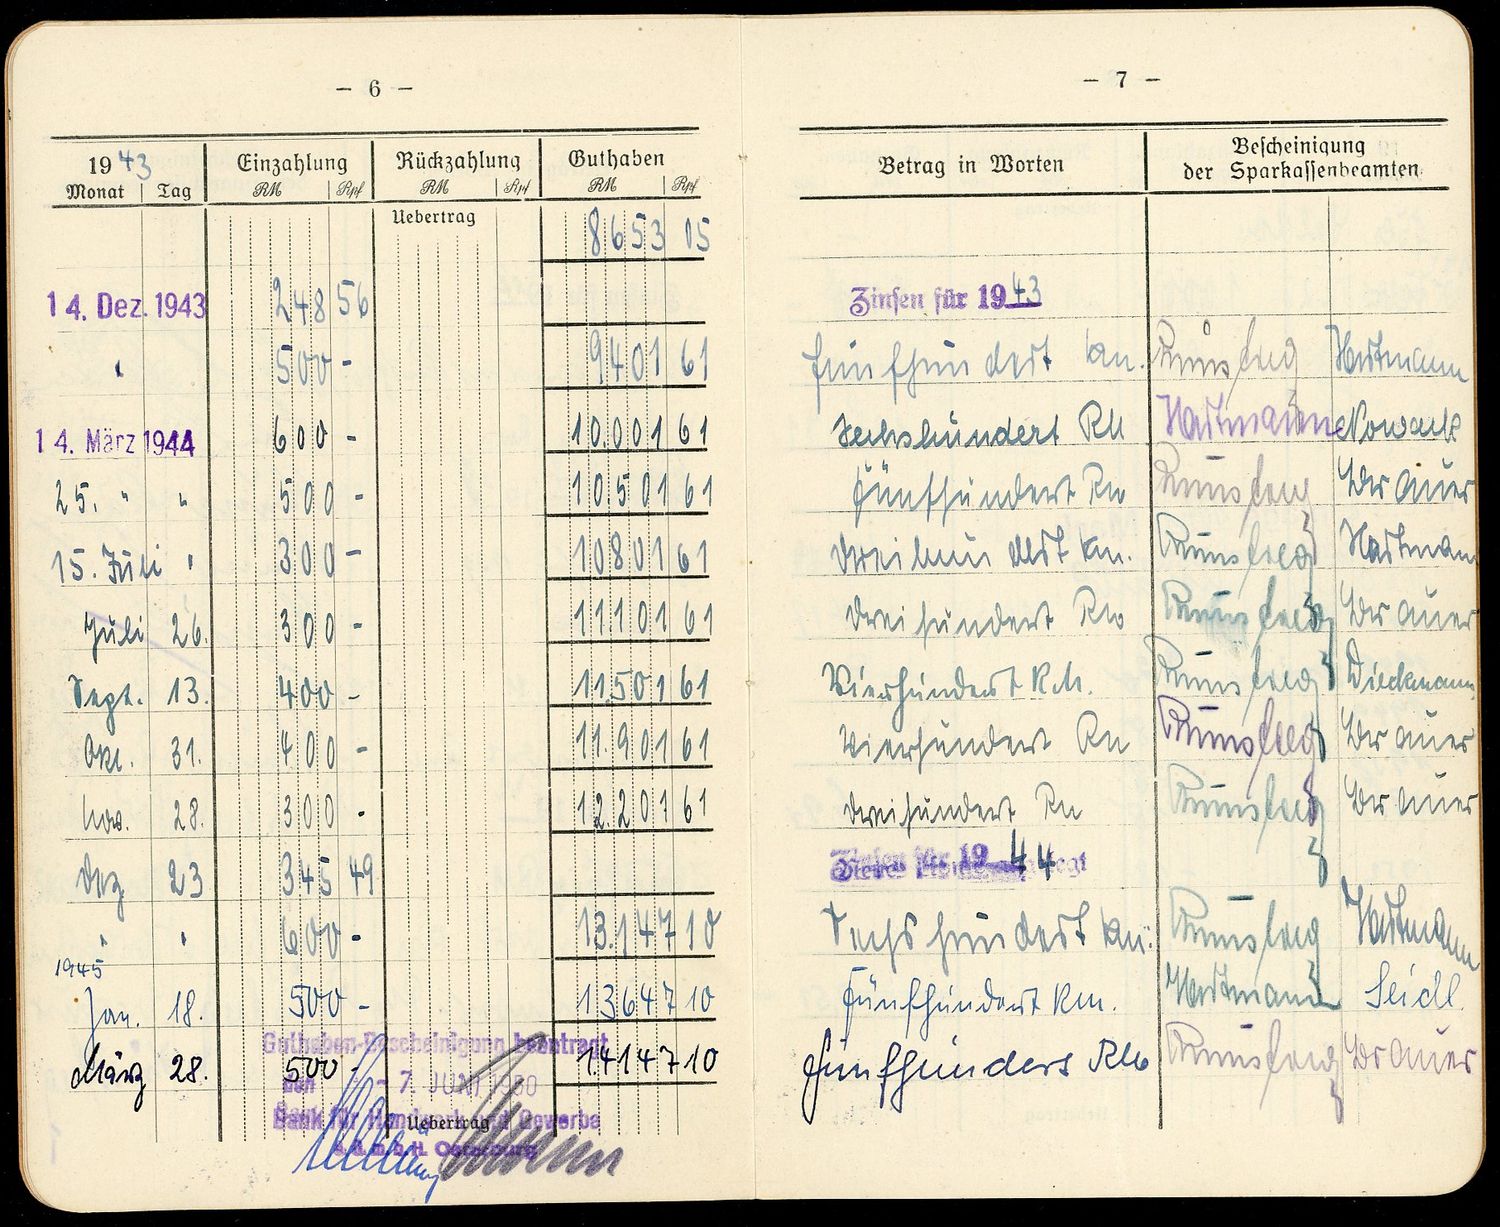 - 6 -
1943 Einzahlung Rückzahlung Guthaben
Monat Tag RM Rpf RM Rpf RM Rpf
Uebertrag 8653 05
14. Dez. 1943 248 56
" 500 - 9401 61
14. März 1944 600 - 10.001 61
25. " " 500 - 10.501 61
15. Juli " 300 - 10801 61
Juli 26. 300 - 11101 61
Sept. 13. 400 - 11.501 61
Okt. 31. 400 - 11.901 61
Nov. 28. 300 - 12.201 61
Dez 23 345 49
" " 600 - 13.147 10
1945
Jan. 18. 500 - 13647 10
März 28. 500 - 14147 10
Guthaben-Bescheinigung beantragt
den - 7. JUNI
Bank für Handwerk und Gewerbe
Uebertrag
- 7 -
Betrag in Worten Bescheinigung
der Sparkassenbeamten
Zinsen für 1943
fünfhundert Rm. Hartmann
Sechshundert RM Hartmann Nowack
Fünfhundert Rm Brauer
Dreihundert Rm. Hartmann
Dreihundert Rm Brauer
Vierhundert R.M. Dieckmann
Vierhundert Rm Brauer
Dreihundert Rm Brauer
Zinsen für 1944
Sechshundert Rm. Hartmann
Fünfhundert Rm. Hartmann Seidl
Fünfhundert RM Brauer